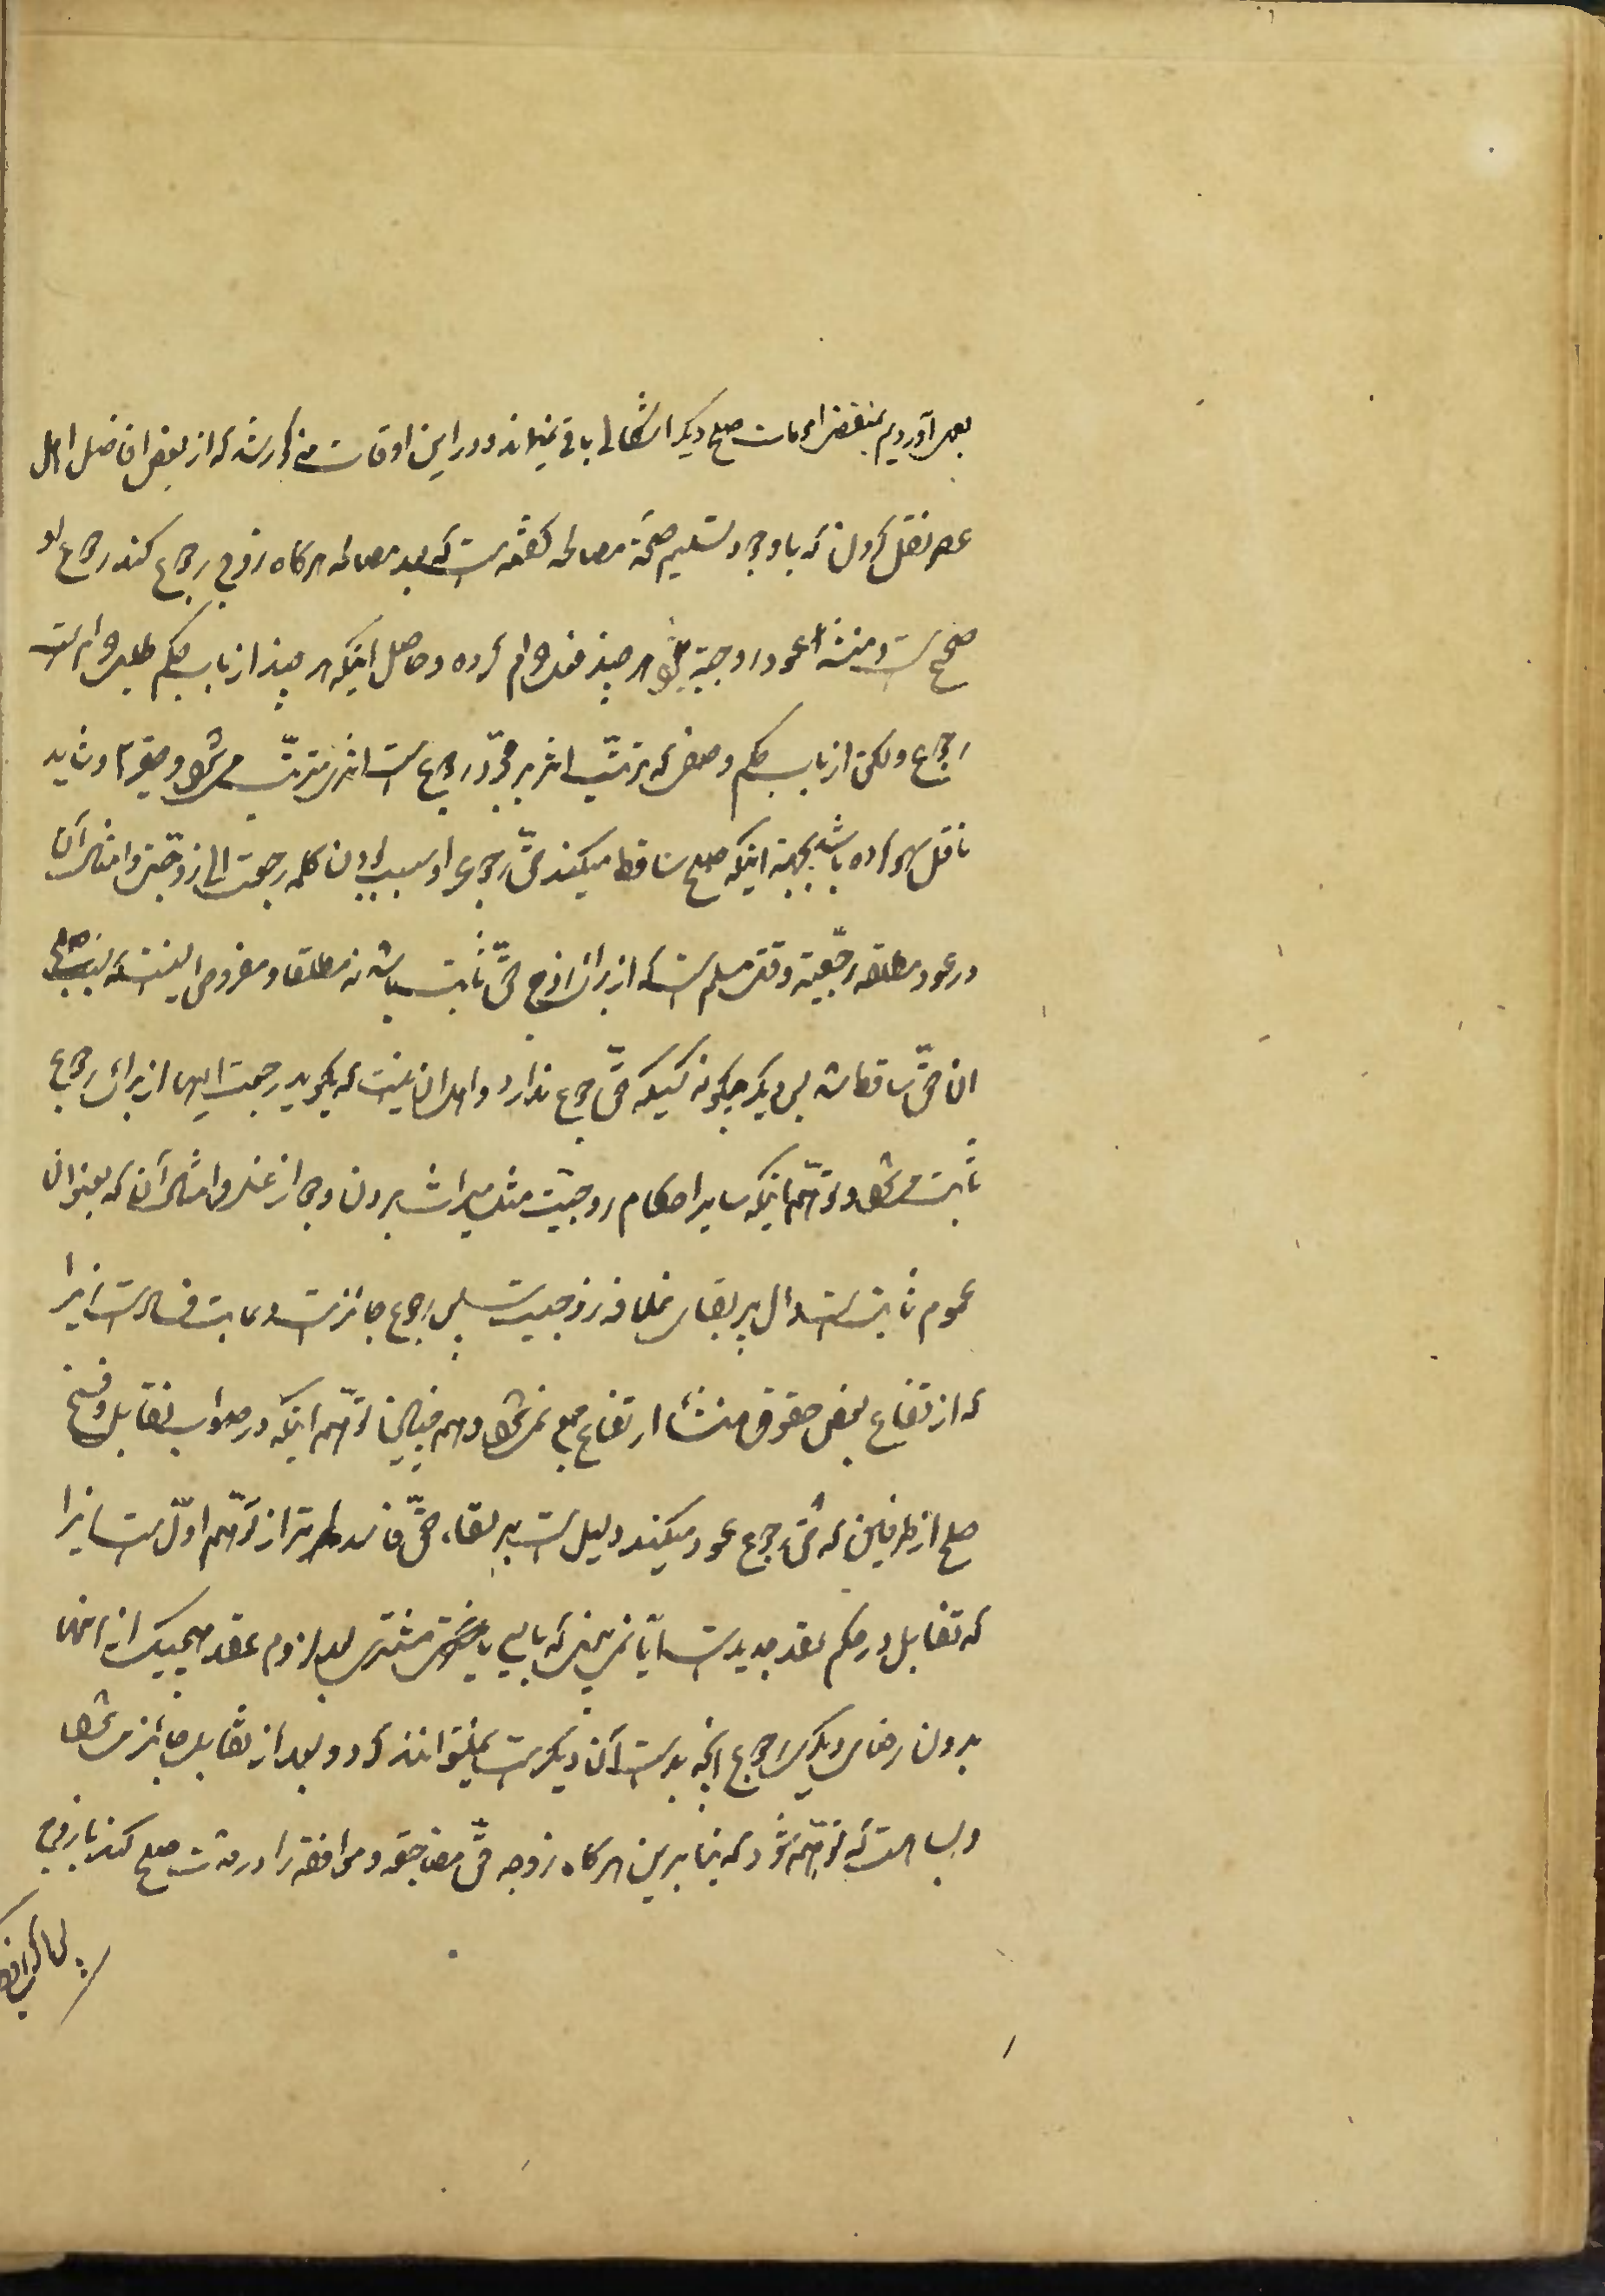 بعمل آوردیم بمقتضی عمومات صلح دیگر اشکالی باقی نمیماند و در این اوقات مذکور شد که از بعض افاضل اهل
عصر نقل کردند که با وجود تسلیم صحّة مصالحه گفته است که بعد مصالحه هرگاه زوج رجوع کند رجوع او
صحیح است و منشأ عود زوجیّة میشود هر چند فعل حرام کرده و حاصل اینکه هر چند از باب حکم طلبی حرام است
رجوع ولکن از باب حکم وضعی که ترتّب اثر بر مجرّد رجوع است اثر مترتّب میشود و شاید
ناقل سهو کرده باشد بجهة اینکه صلح ساقط میکند حقّ رجوع را و سبب بودن کلمه رجعت الی زوجتی و امثال آن
در عود مطلقه رجعیّة وقتی مسلم است که از برای زوج حقّ ثابت باشد نه مطلقا و مفروض اینست که بسبب صلح
ان حقّ ساقط شد پس دیگر چگونه کسیکه حقّ رجوع ندارد و اهل آن نیست که بگوید رجعت الیها از برای رجوع
ثابت میشود و توهّم اینکه سایر احکام زوجیّت مثل میراث بردن و جواز غسل و امثال آن که بعنوان
عموم ثابت است دال بر بقای علاقه زوجیت است پس رجوع جائز است در غایت فساد است زیرا
که ارتفاع بعض حقوق منشأ ارتفاع جمیع نمیشود و همچنین توهّم اینکه در صواب تقایل و فسخ
صلح از طرفین که حقّ رجوع عود میکند دلیل است بر بقاء حقّ فاسد تر از توهّم اوّل است زیرا
که تقایل در حکم عقد جدید است آیا نمی بینی که بایع یا مشتری بعد لزوم عقد هیچیک از آنها
بدون رضای دیگری رجوع بآنچه بدست آن دیگریست نمیتوانند کرد و بعد از تقایل جائز میشود
و بسا هست که توهّم شود که بنابرین هرگاه زوجه حقّ مضاجعه و مواقعه را در مدّت صلح کند با زوج